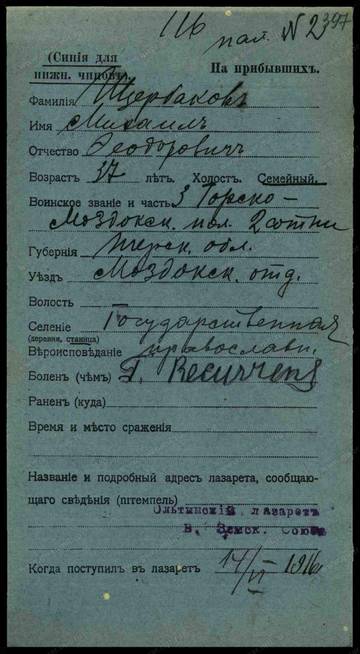 116
пал. N 2 347
(Синія для
нижн. чиновъ).
На прибывшихъ.
Фамилія Щербаковъ
Имя Михаилъ
Отчество Ѳеодоровичъ
Возрастъ 37 лѣтъ. Холост. Семейный.
Воинское званіе и часть 3 Горско-
Моздокск. пол. 2 сотни
Губернія Терск. обл.
Уѣздъ Моздокск. отд.
Волость
Селеніе Государственная
(деревня, станица)
Вѣроисповѣданіе православн.
Болен (чѣмъ) F. Recurrens
Раненъ (куда)
Время и мѣсто сраженія
Названіе и подробный адресъ лазарета, сообщаю-
щаго свѣдѣнія (штемпель)
Ольтинскій лазаретъ
В. Земск. Союза
Когда поступилъ въ лазаретъ 14/VI 1916